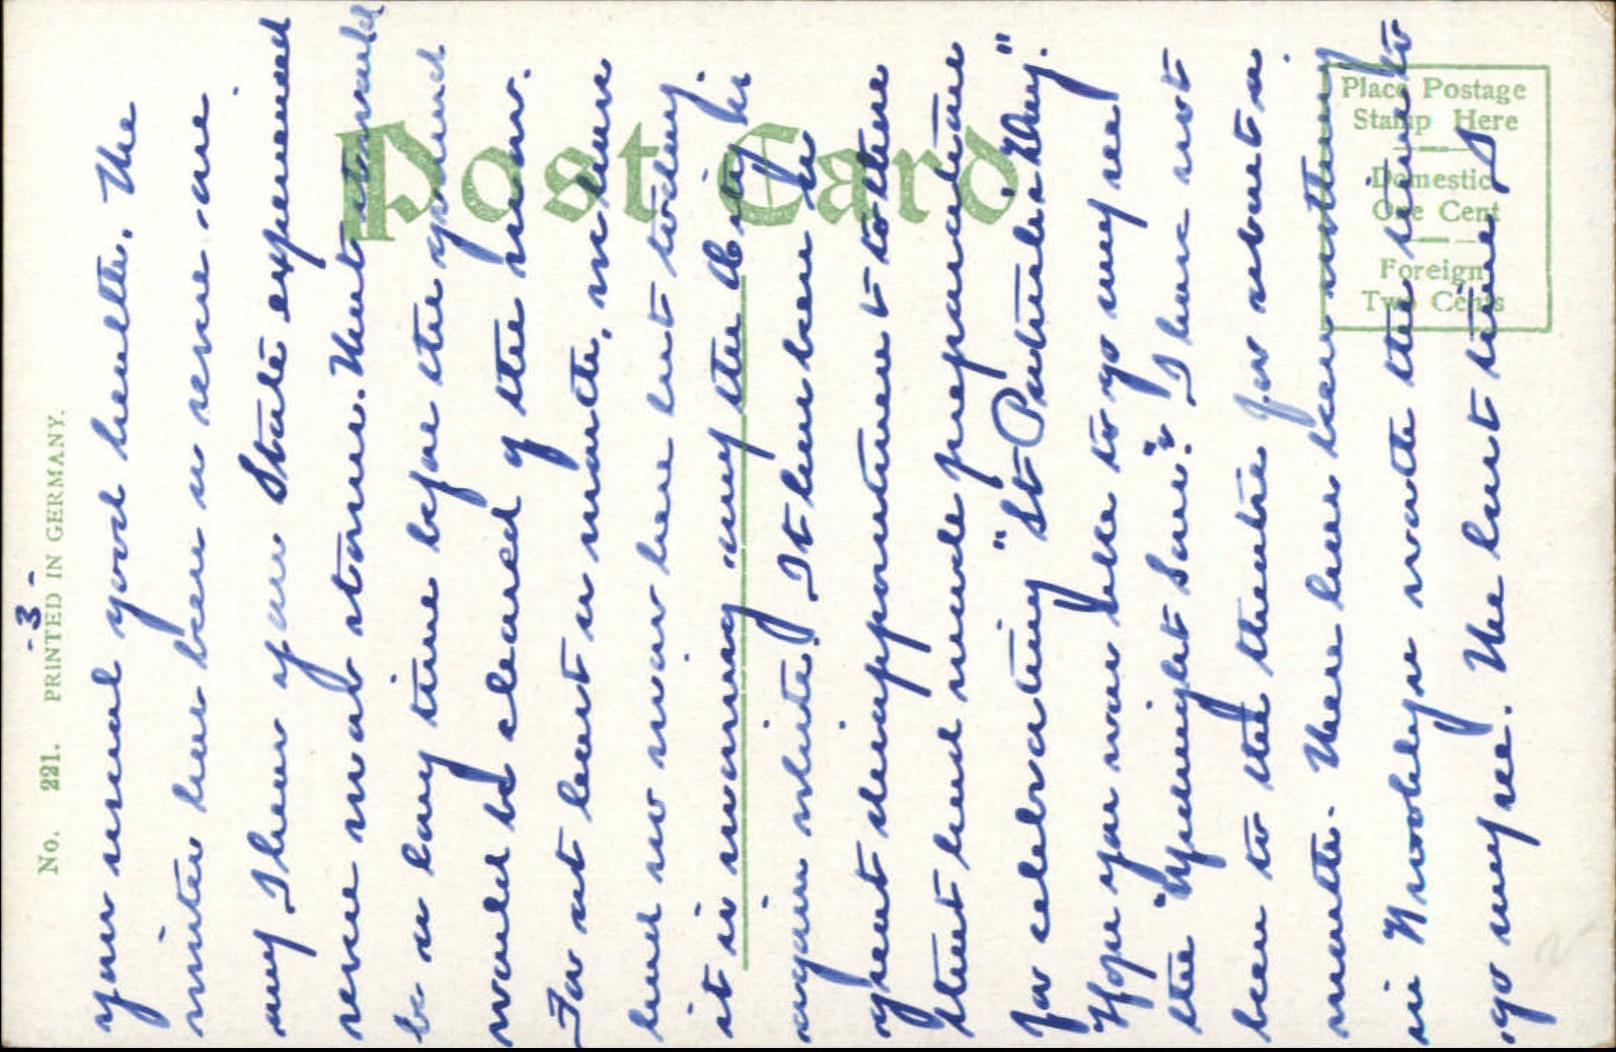 - 3 -
No. 221. PRINTED IN GERMANY.
Post Card
Place Postage
Stamp Here
Domestic
One Cent
Foreign
Two Cents
your usual good health. The
winter has been a severe one.
my I hear your State experienced
severe snow storms. That it would
be a long time before the ground
would be cleared of the snow.
For at least a month, we have
had no snow here but today
it is snowing
again white. It has been a
great disappointment to those
that had made preparations
for celebrating "St. Patrick's Day."
Hope you was able to go may see
the "Midnight Sons". I have not
been to the theatre for about a
month. There has been nothing
in Brooklyn worth the while to
go may see. The last time I